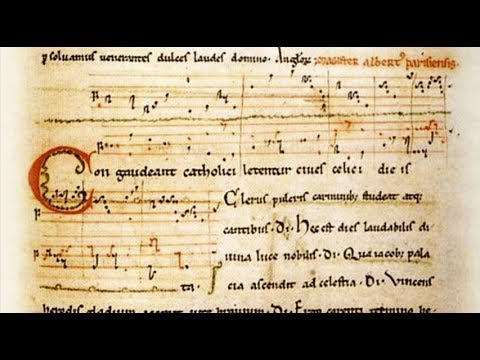 psolvamus venerantes dulces laudes domino. magister albert' parisiensis.
Congaudeant catholici letentur cives celici die is
Clerus pulcris carminib; studeat atq;
cantibus. Di. Hec est dies laudabilis di
uina luce nobilis. Di. Qua iacob; pala
ta. cia ascendit ad celestia. Di. Vincens
herodis gladium